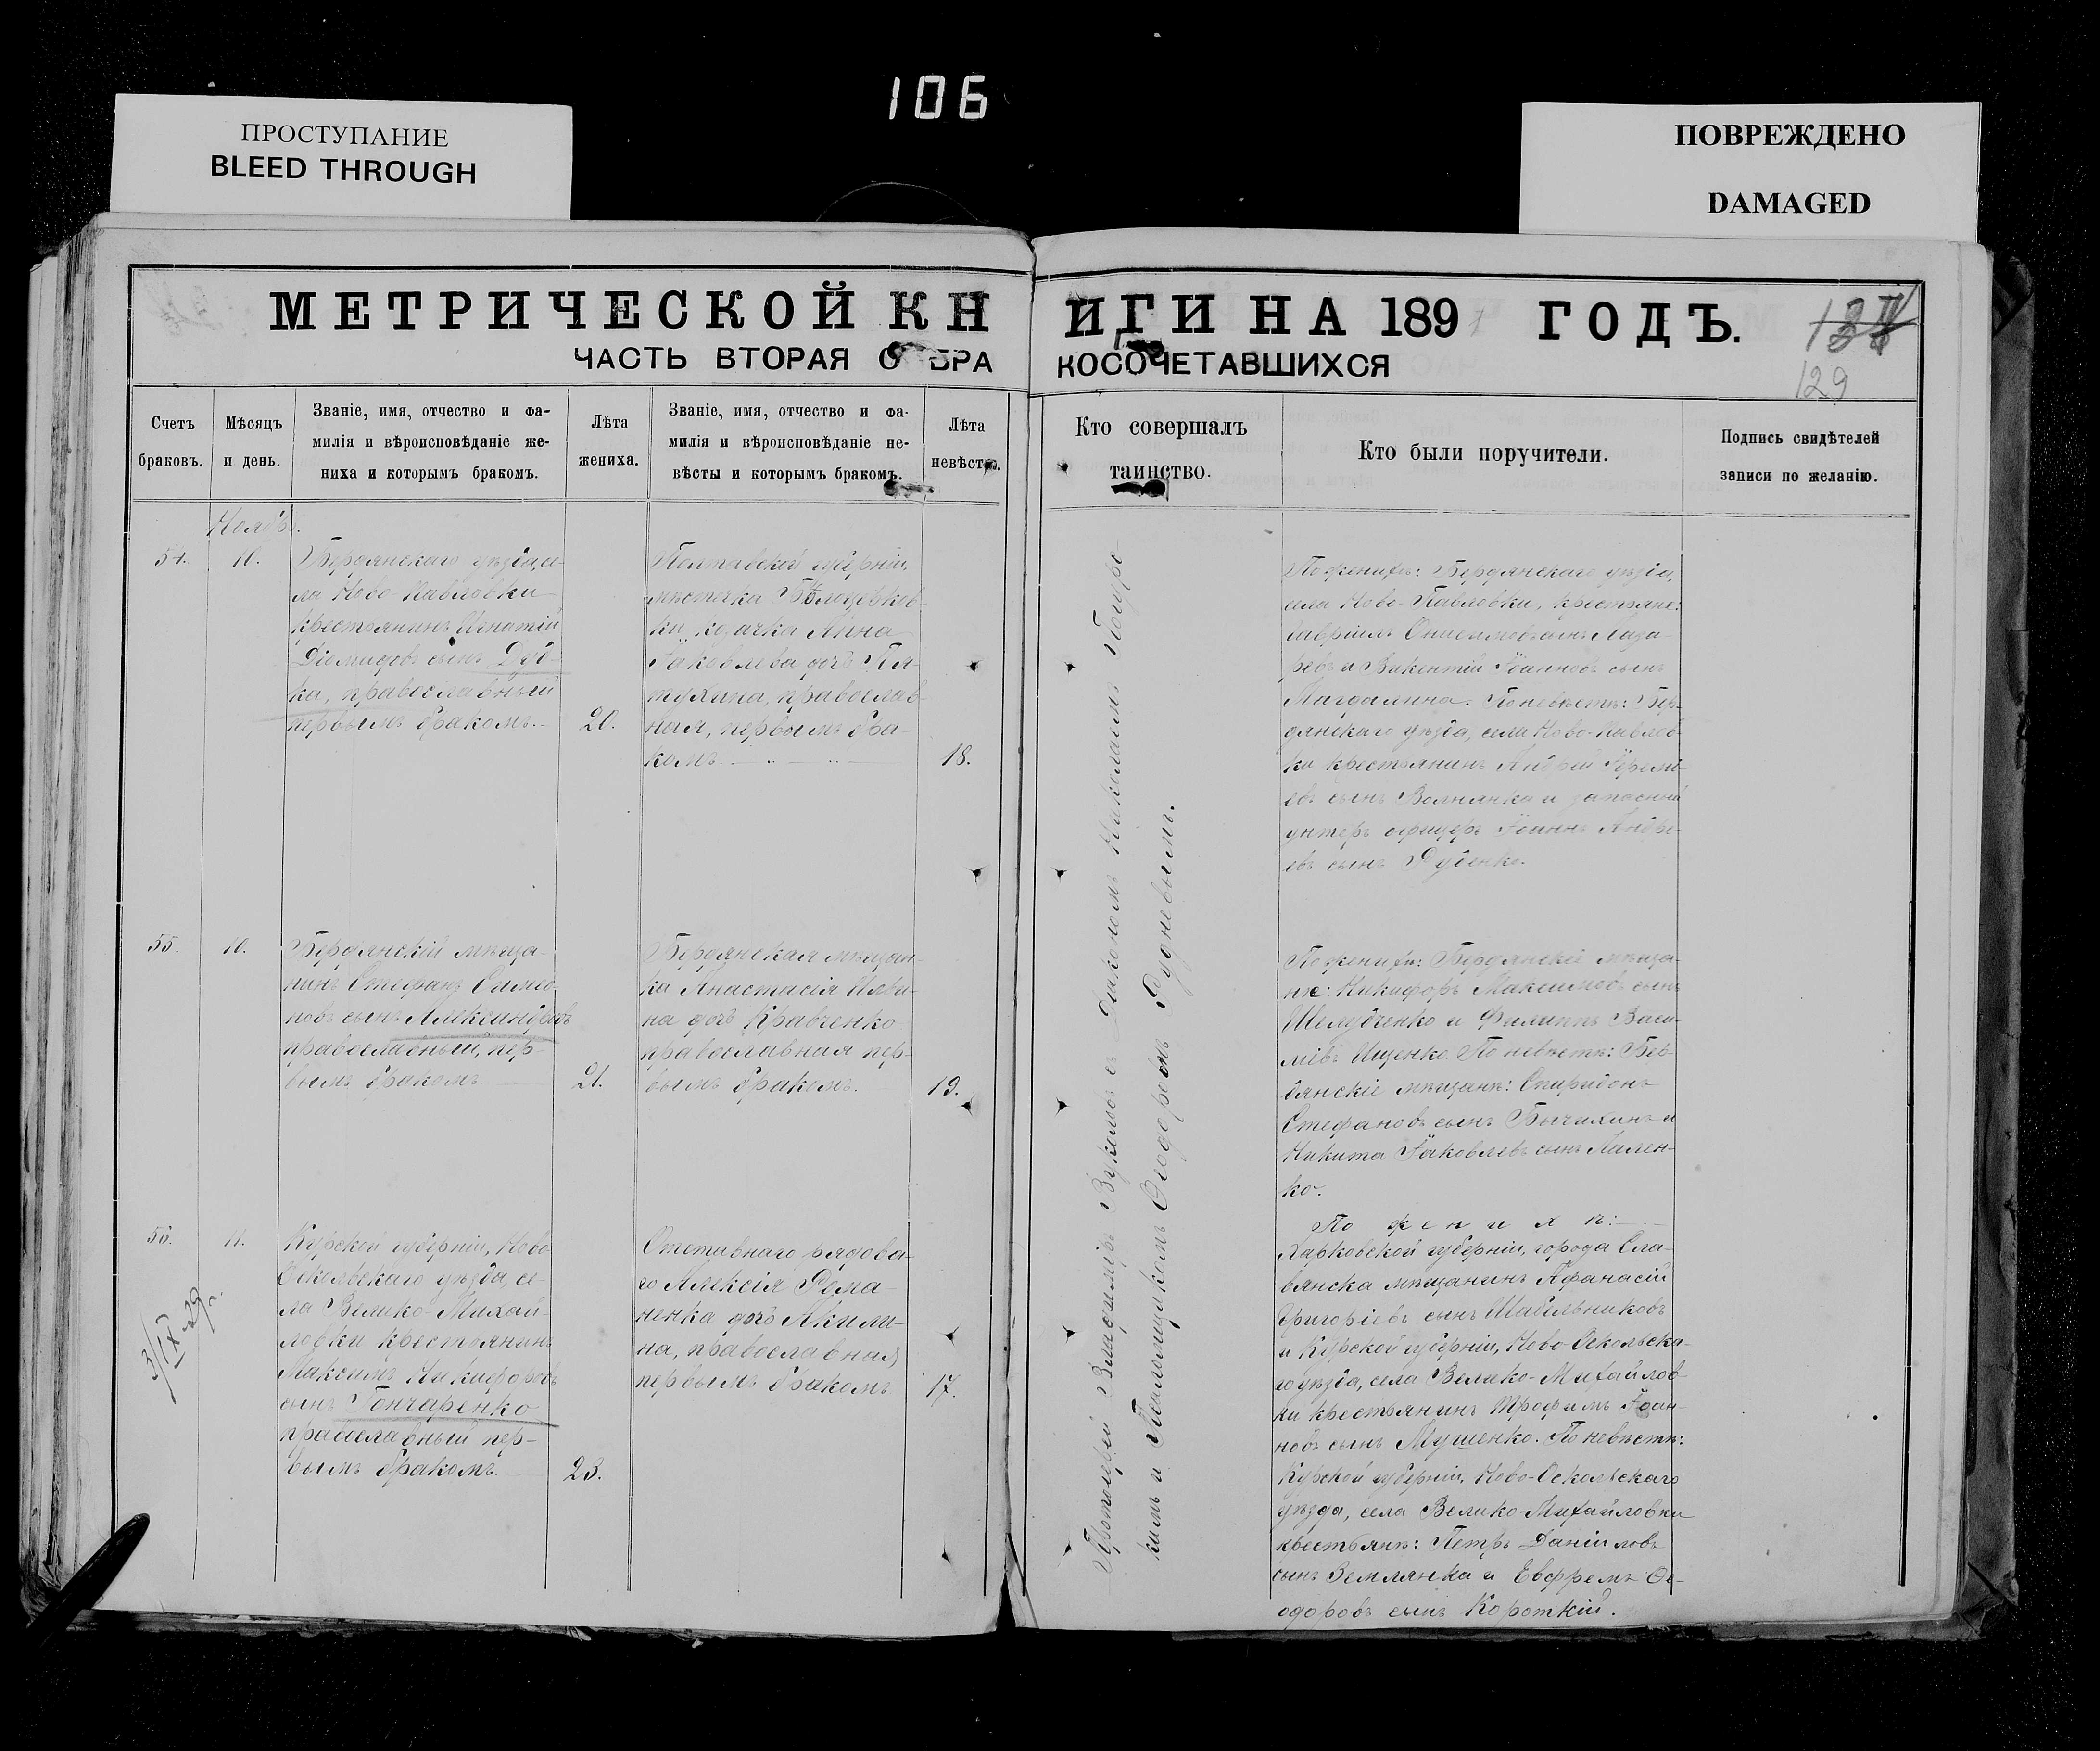 106
ПРОСТУПАНИЕ
BLEED THROUGH
ПОВРЕЖДЕНО
DAMAGED
МЕТРИЧЕСКОЙ КНИГИ НА 189 ГОДЪ.
ЧАСТЬ ВТОРАЯ О БРАКОСОЧЕТАВШИХСЯ
129
Счетъ
браковъ.
Мѣсяцъ
и день.
Званіе, имя, отчество и фа-
милія и вѣроисповѣданіе же-
ниха и которымъ бракомъ.
Лѣта
жениха.
Званіе, имя, отчество и фа-
милія и вѣроисповѣданіе не-
вѣсты и которымъ бракомъ.
Лѣта
невѣсты.
Кто совершалъ
таинство.
Кто были поручители.
Подпись свидѣтелей
записи по желанію.
Ноябь.
54.
10.
Бердянскаго уѣзда, се-
ла Ново-Павловки
крестьянинъ Игнатій
Діомидовъ сынъ Дуб-
ка, православный
первымъ бракомъ.
20.
Полтавской губерніи,
мѣстечка Бѣлоцерков-
ки козачка Анна
Іаковлева дочь
православ-
ная, первымъ бра-
комъ.
18.
По женихѣ: Бердянскаго уѣзда,
села Ново-Павловки, крестьяне:
Гавріилъ Лаза-
ревъ и Викентій Іоанновъ сынъ
Магдалина. По невѣстѣ: Бер-
дянскаго уѣзда, села Ново-Павлов-
ки крестьянинъ Андрей Іеремі-
евъ сынъ Волнянка и запасный
унтеръ офицеръ Іоаннъ Андре-
евъ сынъ Руденко.
55.
10.
Бердянскій мѣща-
нинъ Стефанъ Симео-
новъ сынъ Александровъ
православный, пер-
вымъ бракомъ
21.
Бердянская мѣщан-
ка Анастасія
на дочь Кравченко
православная пер-
вымъ бракомъ.
19.
По женихѣ: Бердянскіе мѣща-
не: Никифоръ Максимовъ сынъ
Шелудченко и Филиппъ Васи-
ліевъ Ищенко. По невѣстѣ: Бер-
дянскіе мѣщане: Спиридонъ
Стефановъ сынъ Бычихинъ и
Никита Іаковлевъ сынъ Пален-
ко.
56.
11.
3/IX-29 г.
Курской губерніи, Ново-
Оскольскаго уѣзда, се-
ла Велико-Михай-
ловки крестьянинъ
Максимъ Никифоровъ
сынъ Гончаренко
православный пер-
вымъ бракомъ.
23.
Отставнаго рядова-
го Алексія Рома-
ненка дочь Акили-
на, православная
первымъ бракомъ
17.
По женихѣ:
Харковской губерніи, города Сла-
вянска мѣщанинъ Афанасій
Григоріевъ сынъ Шабельниковъ
и Курской губерніи, Ново-Оскольска-
го уѣзда, села Велико-Михайлов-
ки крестьянинъ Трофимъ Іоан-
новъ сынъ Мушенко. По невѣстѣ:
Курской губерніи, Ново-Оскольскаго
уѣзда, села Велико-Михайловки
крестьяне: Петръ Даніиловъ
сынъ Землянка и Евфремъ Ѳе-
одоровъ сынъ Короткій.
Протоіерей Владиміръ съ Діакономъ Николаемъ
кимъ и Псаломщикомъ Ѳеодоромъ Рудневымъ.